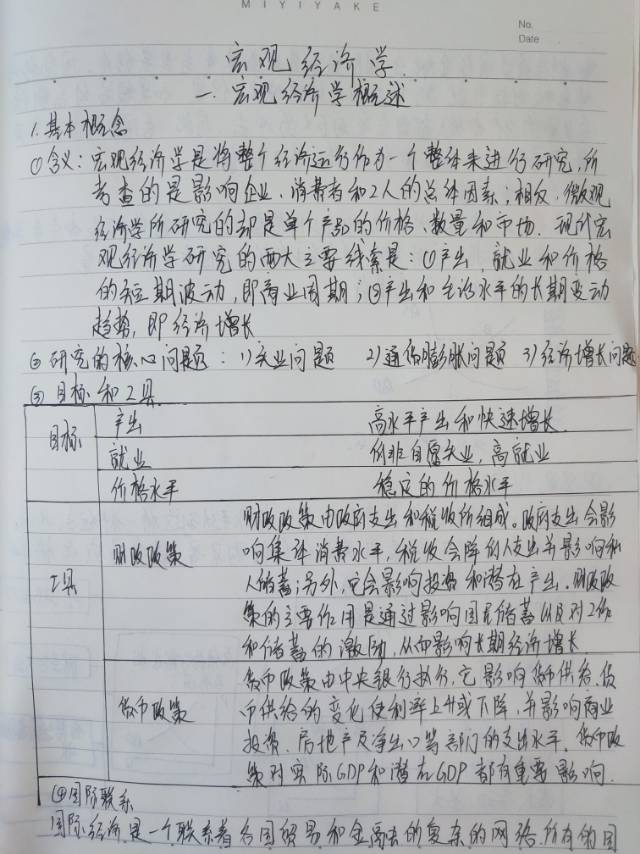 MIYIYAKE
No.
Date
宏观经济学
一.宏观经济学概述
1.基本概念
①含义:宏观经济学是将整个经济运行作为一个整体来进行研究,所
考查的是影响企业、消费者和工人的总体因素;相反,微观
经济学所研究的都是单个产品的价格、数量和市场.现代宏
观经济学研究的两大主要线索是:①产出、就业和价格
的短期波动,即商业周期;②产出和生活水平的长期变动
趋势,即经济增长
②研究的核心问题:1)失业问题 2)通货膨胀问题 3)经济增长问题
③目标和工具
目标 产出 高水平产出和快速增长
就业 低非自愿失业,高就业
价格水平 稳定的价格水平
工具 财政政策 财政政策由政府支出和税收所组成。政府支出会影
响集体消费水平,税收会降低人支出并影响私
人储蓄;另外,它会影响投资和潜在产出.财政政
策的主要作用是通过影响国民储蓄以及对工作
和储蓄的激励,从而影响长期经济增长.
货币政策 货币政策由中央银行执行,它影响货币供给,货
币供给的变化使利率上升或下降,并影响商业
投资、房地产及净出口等部门的支出水平.货币政
策对实际GDP和潜在GDP都有重要影响.
④国际联系
国际经济是一个联系着各国贸易和金融的复杂的网络.所有的国